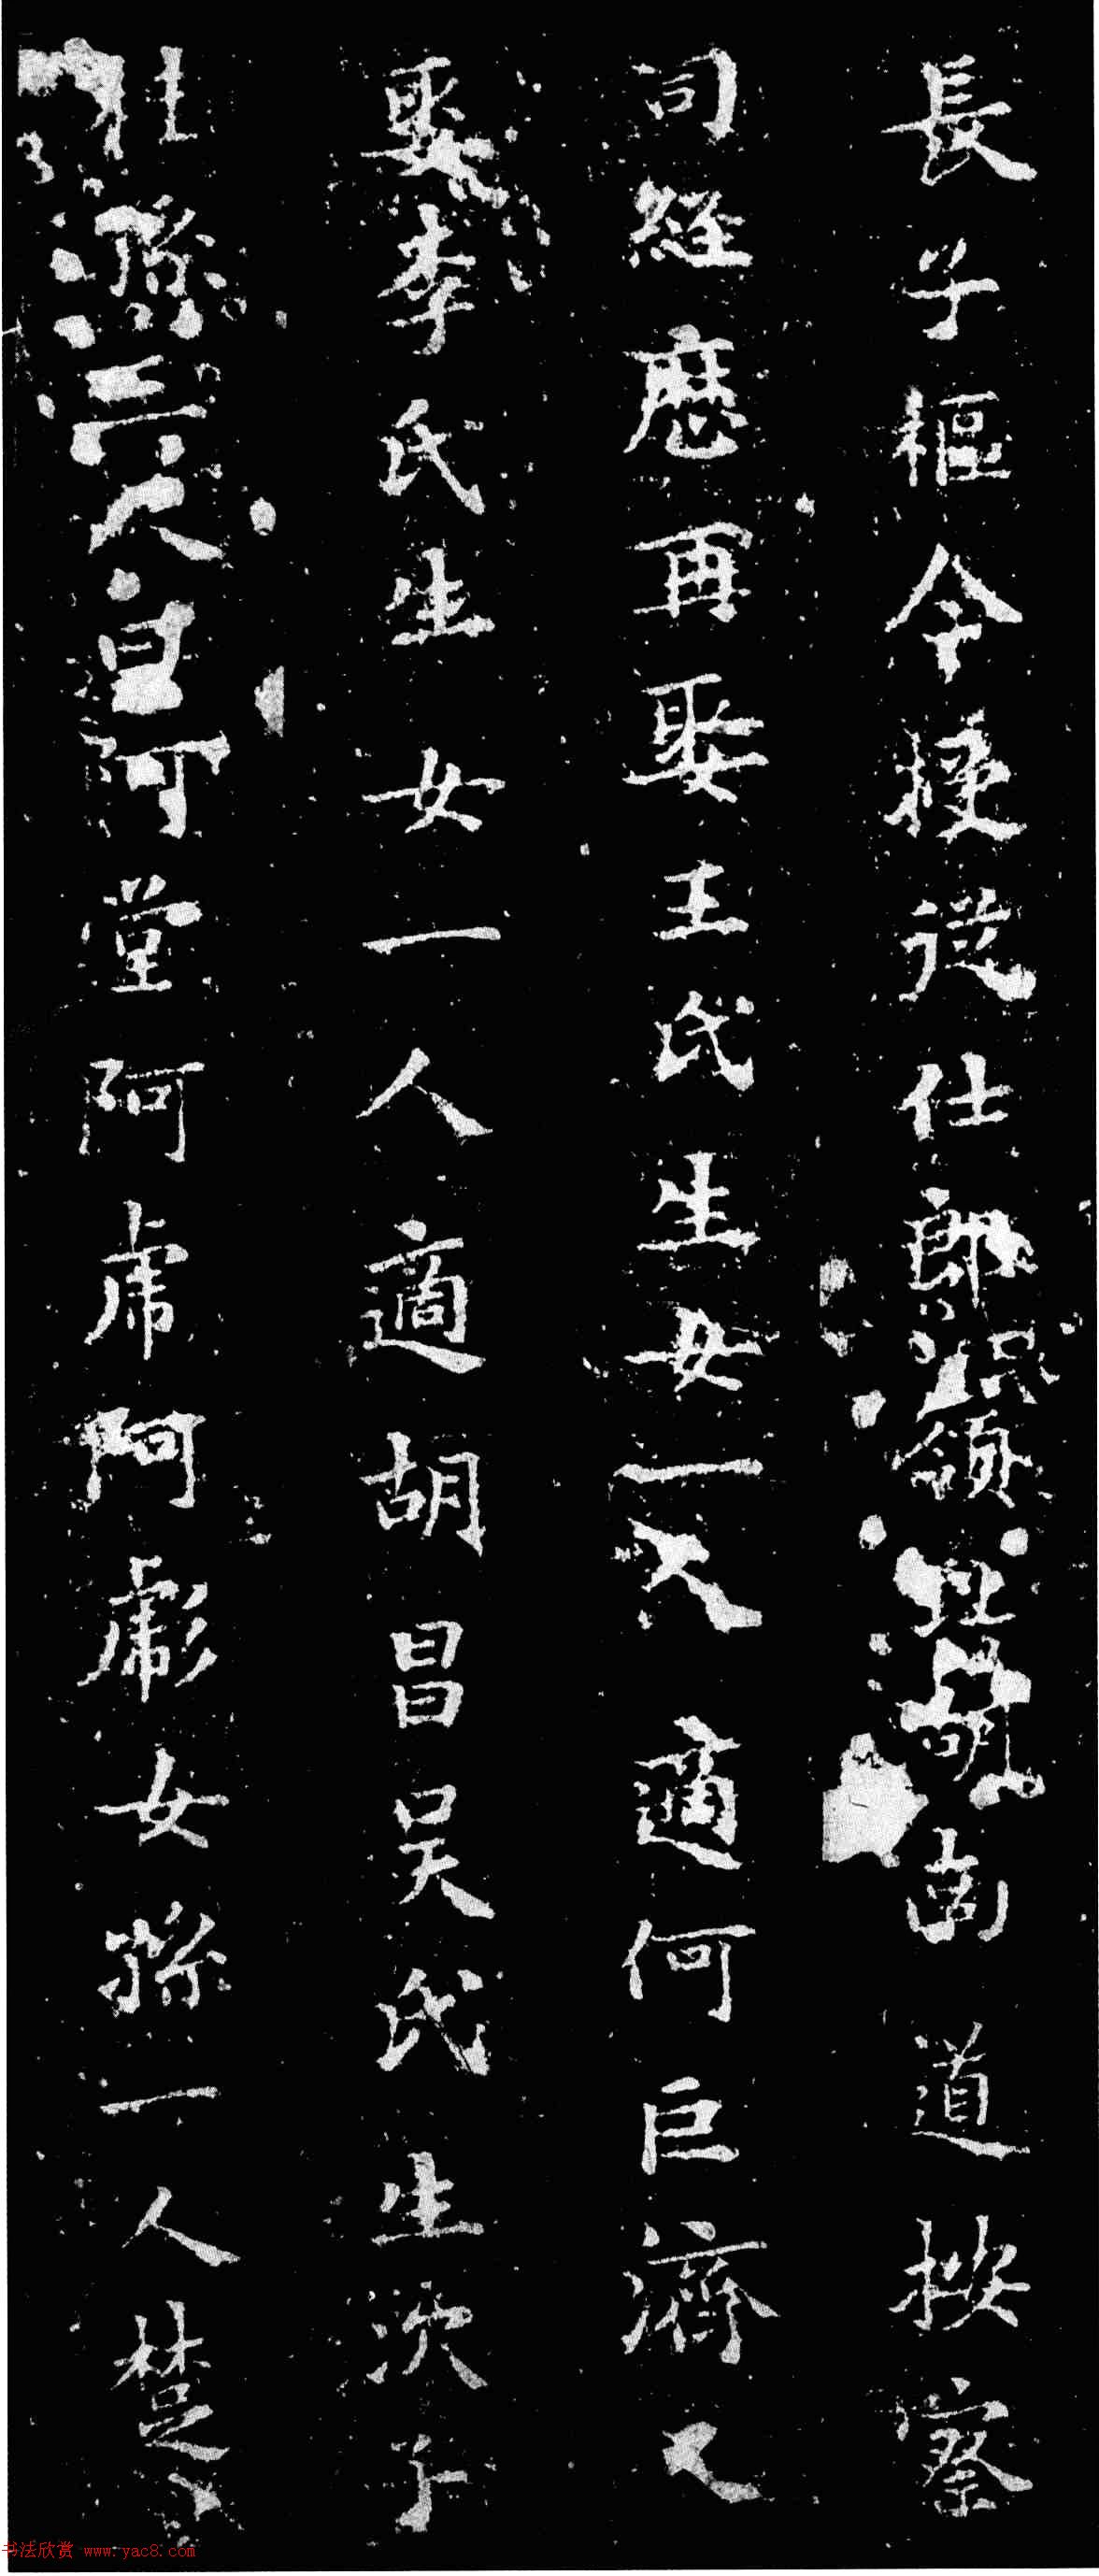 長子樞令授從仕郎領北胡南道按察
司經歷再娶王氏生女一人適何巨濟又
娶李氏生女一人適胡昌吳氏生次子
柱孫三人曰阿堂阿虎阿彪女孫一人楚
书法欣赏 www.yac8.com